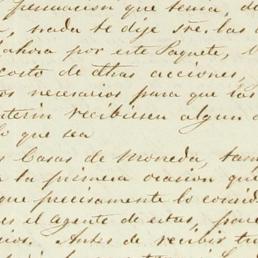 formacion que tenia, de
, nada te dije sre. las a
ahora por este Paquete, l
costo de dhas acciones,
os necesarios para que las
nterin recibiesen algun d
lo que sea
s Casas de Moneda, tam
a la primera ocasion que
que precisamente lo consid
es el agente de estas, para
cios. Antes de recibir tu